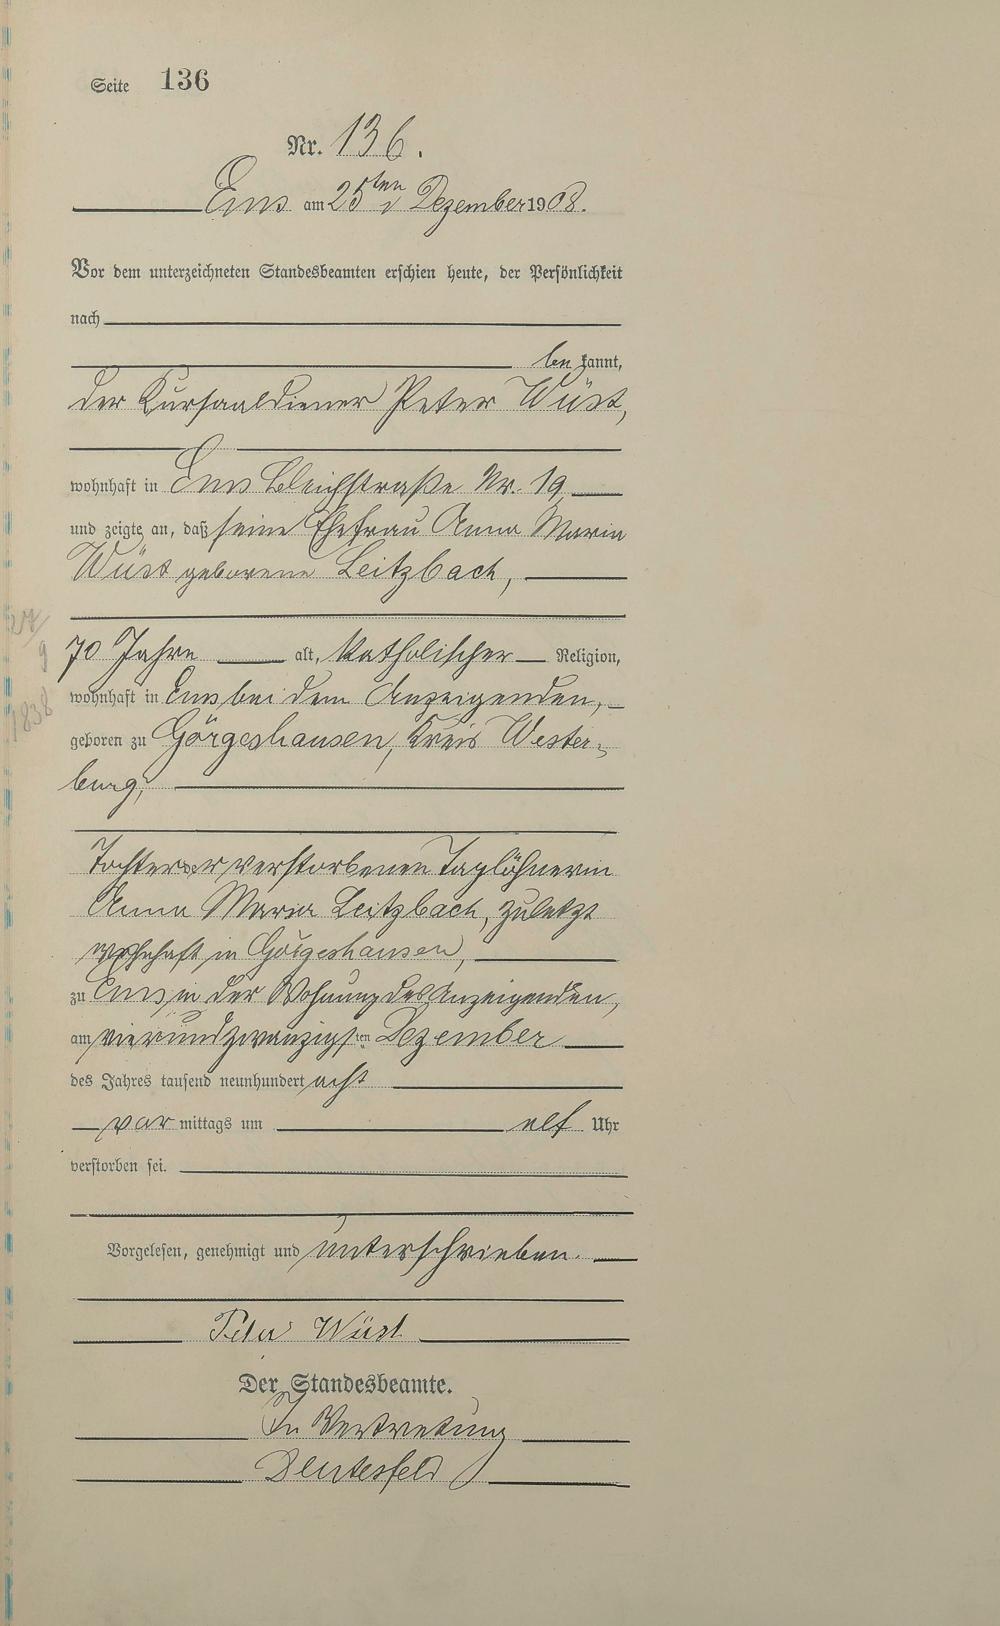 Seite 136
Nr. 136.
Ems am 25ten Dezember 1908.
Vor dem unterzeichneten Standesbeamten erschien heute, der Persönlichkeit
nach
bekannt,
der Kursaaldiener Peter Wüst,
wohnhaft in Ems Bleichstraße Nr. 19
und zeigte an, daß seine Ehefrau Anna Maria
Wüst geborene Leitzbach,
27/
70 Jahre alt, katholischer Religion,
9
wohnhaft in Ems bei dem Anzeigenden,
1838
geboren zu Görgeshausen, Kreis Wester-
burg,
Tochter der verstorbenen Taglöhnerin
Anna Maria Leitzbach, zuletzt
wohnhaft in Görgeshausen,
zu Ems in der Wohnung des Anzeigenden,
am vierundzwanzigsten Dezember
des Jahres tausend neunhundert acht
vor mittags um elf Uhr
verstorben sei.
Vorgelesen, genehmigt und unterschrieben.
Peter Wüst
Der Standesbeamte.
In Vertretung